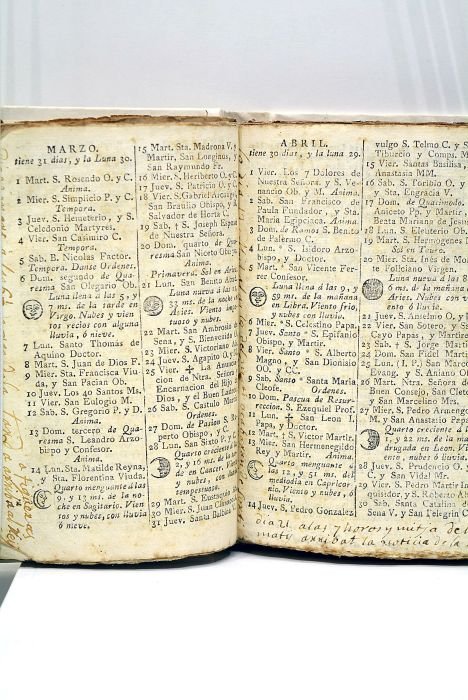 MARZO.
tiene 31 dias, y la Luna 30.
1 Mart. S. Rosendo O. y C.
Anima.
2 Mier. S. Simplicio P. y C.
Tempora.
3 Juev. S. Hemeterio, y S.
Celedonio Martyres.
4 Vier. San Casimiro C.
Tempora.
5 Sab. B. Nicolas Factor.
Tempora. Danse Ordenes.
6 Dom. segundo de Qua-
resma San Olegario Ob.
Luna llena á las 5, y
7 ms. de la tarde en
Virgo. Nubes y vien
tos recios con alguna
lluvia, ó nieve.
7 Lun. Santo Thomás de
Aquino Doctor.
8 Mart. S. Juan de Dios F.
9 Mier. Sta. Francisca Viu-
da, y San Pacian Ob.
10 Juev. Los 40 Santos Ms.
11 Vier. San Eulogio M.
12 Sab. S. Gregorio P. y D.
Anima.
13 Dom. tercero de Qua-
resma S. Leandro Arzo-
bispo y Confesor.
Anima.
14 Lun. Sta. Matilde Reyna,
y Sta. Florentina Viuda.
Quarto menguante á las
9, y 13 ms. de la no-
che en Sagitario. Vien
tos y nubes, con lluvia
ó nieve.
15 Mart. Sta. Madrona V. y
Martir, San Longinos, y
San Raymundo Fr.
16 Mier. S. Heriberto O. y C.
17 Juev. S. Patricio O. y C.
18 Vier. S. Gabriel Arcangel,
San Braulio Obispo, y
Salvador de Horta C.
19 Sab. † S. Joseph Esposo
de Nuestra Señora.
20 Dom. quarto de Qua-
resma San Niceto Ob.
Anima.
Primavera. Sol en Aries.
21 Lun. San Benito Abad.
Luna nueva á las
33 ms. de la noche en
Aries. Viento impe-
tuoso y nubes.
22 Mart. San Ambrosio de
Sena, y S. Bienvenido
23 Mier. S. Victoriano
24 Juev. S. Agapito O. y
25 Vier. ✠ La Anuncia
cion de Ntra. Señora
Encarnacion del Hijo
Dios, y el Buen Ladron
26 Sab. S. Castulo Mart.
Ordenes.
27 Dom. de Pasion S. Ru-
perto Obispo, y C.
28 Lun. San Sixto P. y C.
Quarto creciente
2, y 16 ms. de la
de en Cancer. Vientos
y nubes, con lluvias
tempestuosas.
29 Mart. S. Eustasio
30 Mier. S. Juan Climaco
31 Juev. Santa Balbina
ABRIL.
tiene 30 dias, y la luna 29.
1 Vier. Los 7 Dolores de
Nuestra Señora, y S. Ve-
nancio Ob. y M. Anima.
2 Sab. San Francisco de
Paula Fundador, y Sta.
Maria Egipciaca. Anima.
3 Dom. de Ramos S. Benito
de Palermo C.
4 Lun. * S. Isidoro Arzo-
bispo, y Doctor.
5 Mart. * San Vicente Fer-
rer Confesor.
Luna llena á las 9, y
59 ms. de la mañana
en Libra. Viento frio,
y nubes con lluvia.
6 Mier. * S. Celestino Papa,
7 Juev. Santo * S. Epifanio
Obispo, y Martir.
8 Vier. Santo * S. Alberto
Magno, y San Dionisio
OO. y CC.
9 Sab. Santo * Santa Maria
Cleofe. Ordenes.
10 Dom. Pascua de Resur-
reccion. S. Ezequiel Prof.
11 Lun. ✠ San Leon I.
Papa, y Doctor.
12 Mart. † S. Victor Martir.
13 Mier. San Hermenegildo
Rey y Martir. Anima.
Quarto menguante á
las 12, y 51 ms. del
mediodia en Capricor-
nio. Viento y nubes, ó
lluvia.
14 Juev. S. Pedro Gonzalez
vulgo S. Telmo C. y S
Tiburcio y Comps. M
15 Vier. Santas Basilisa,
Anastasia MM.
16 Sab. S. Toribio O. y
y Sta. Engracia V
17 Dom. de Quasimodo
Aniceto Pp. y Martir
Beata Mariana de Jesus
18 Lun. S. Eleuterio Ob.
19 Mart. S. Hermogenes
Sol en Tauro.
20 Mier. Sta. Inés de Mon
te Policiano Virgen.
Luna nueva á las 8
6 ms. de la mañana
Aries. Nubes con vi
to ó lluvia.
21 Juev. S. Anselmo O. y
22 Vier. San Sotero, y S
Cayo Papas, y Martir
23 Sab. † S. Jorge Martir
24 Dom. San Fidel Martir
25 Lun. (I. P.) San Marcos
Evang. y S. Aniano O.
26 Mart. Ntra. Señora d
Buen Consejo, San Cleto
y San Marcelino
27 Mier. S. Pedro Armengol
M. y San Anastasio Papa
Quarto creciente á
1, y 22 ms. de la ma
drugada en Leon. Vi
ento, nubes ó lluvia.
28 Juev. S. Prudencio O.
C. y San Vidal Mr.
29 Vier. S. Pedro Martir In
quisidor, y S. Roberto Ab
30 Sab. Santa Catalina d
Sena V. y San Pelegrin C
dia 21 a las 7 horas y mitja de
mati arribat la noticia de la